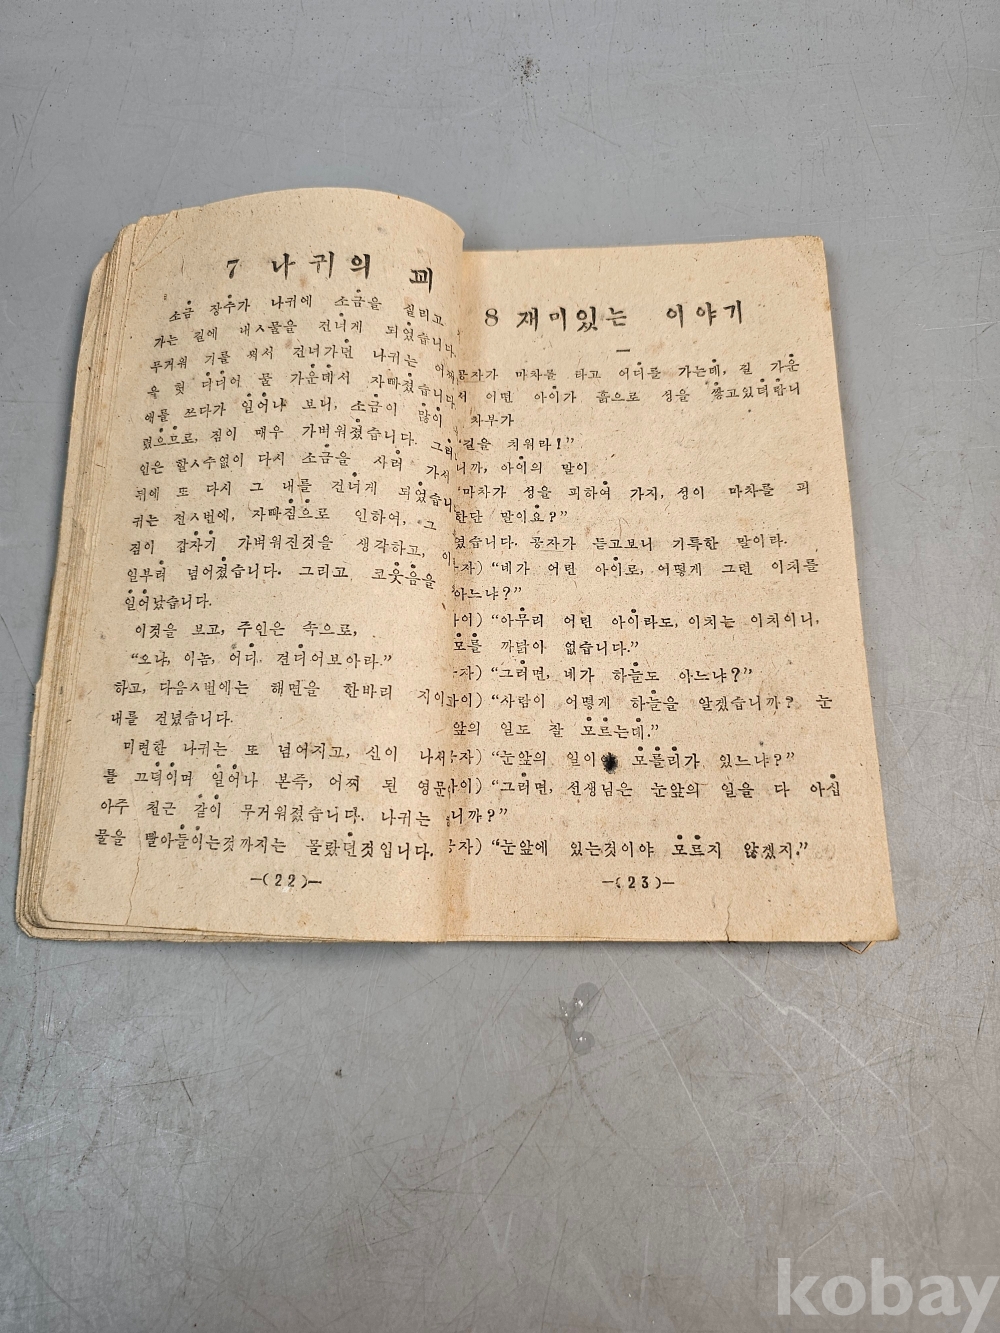 7 나귀의 꾀
소금 장수가 나귀에 소금을 실리고
가는 길에 내ㅅ물을 건너게 되었습니다.
무거워 기를 써서 건너가던 나귀는
욱 헛 디디어 물 가운데서 자빠졌습니다.
애를 쓰다가 일어나 보니, 소금이 많이
렸으므로, 짐이 매우 가벼워졌습니다. 그러
인은 할ㅅ수없이 다시 소금을 사러 가서
뒤에 또 다시 그 내를 건너게 되었습니
귀는 전ㅅ번에, 자빠짐으로 인하여, 그
짐이 갑자기 가벼워진것을 생각하고, 이
일부러 넘어졌습니다. 그리고 코웃음을
일어났습니다.
이것을 보고, 주인은 속으로,
“오냐, 이놈, 어디 견디어보아라.”
하고, 다음ㅅ번에는 해면을 한바리 지이
내를 건넜습니다.
미련한 나귀는 또 넘어지고, 신이 나서
를 끄덕이며 일어나 본즉, 어찌 된 영문
아주 천근 같이 무거워졌습니다. 나귀는
물을 빨아들이는것까지는 몰랐던것입니다.
—(22)—
8 재미있는 이야기
一
공자가 마차를 타고 어디를 가는데, 길 가운
서 어떤 아이가 흙으로 성을 쌓고있더랍니
차부가
“길을 치워라!”
니까, 아이의 말이
“마차가 성을 피하여 가지, 성이 마차를 피
한단 말이요?”
였습니다. 공자가 듣고보니 기특한 말이라.
자) “네가 어린 아이로, 어떻게 그런 이치를
아느냐?”
이) “아무리 어린 아이라도, 이치는 이치이니,
모를 까닭이 없습니다.”
자) “그러면, 네가 하늘도 아느냐?”
이) “사람이 어떻게 하늘을 알겠습니까? 눈
앞의 일도 잘 모르는데.”
자) “눈앞의 일이야 모를리가 있느냐?”
이) “그러면, 선생님은 눈앞의 일을 다 아십
니까?”
자) “눈앞에 있는것이야 모르지 않겠지.”
—(23)—
kobay